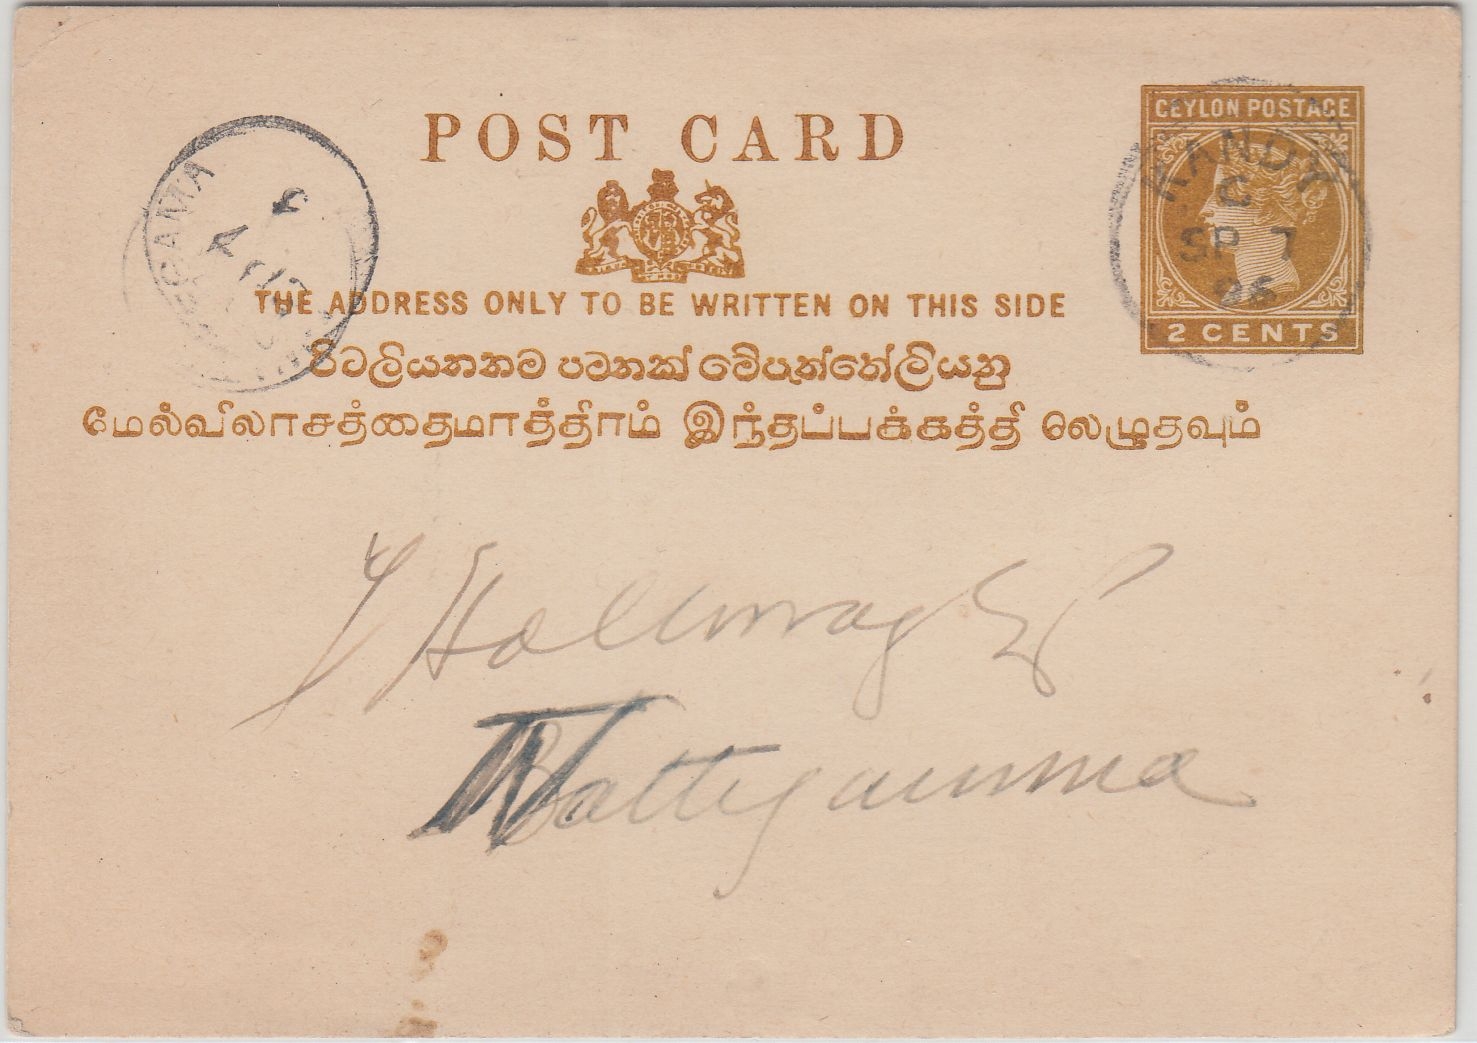 POST CARD
CEYLON POSTAGE
KANDY
C
SP 7
96
2 CENTS
GAMA
A
THE ADDRESS ONLY TO BE WRITTEN ON THIS SIDE
පිටලියනතම පටනක් මේපැත්තේලියනු
மேல்விலாசத்தைமாத்திரம் இந்தப்பக்கத்தி லெழுதவும்
Holloway Esq
Battegamma